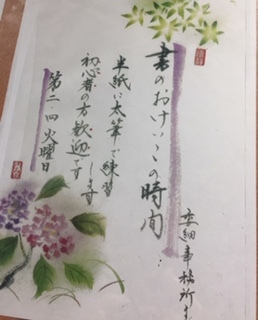 書のおけいこの時間
半紙に太筆で練習します
初心者の方歓迎です
第二・四火曜日